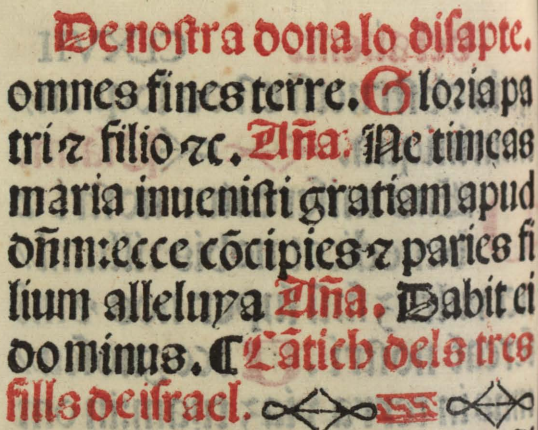 De nostra dona lo disapte.
omnes fines terre. Gloria pa
tri ⁊ filio ⁊c. Aña: Ne timeas
maria inuenisti gratiam apud
dñm: ecce cōcipies ⁊ paries fi
lium alleluya Aña. Dabit ei
dominus. ¶ Cātich dels tres
fills de israel.